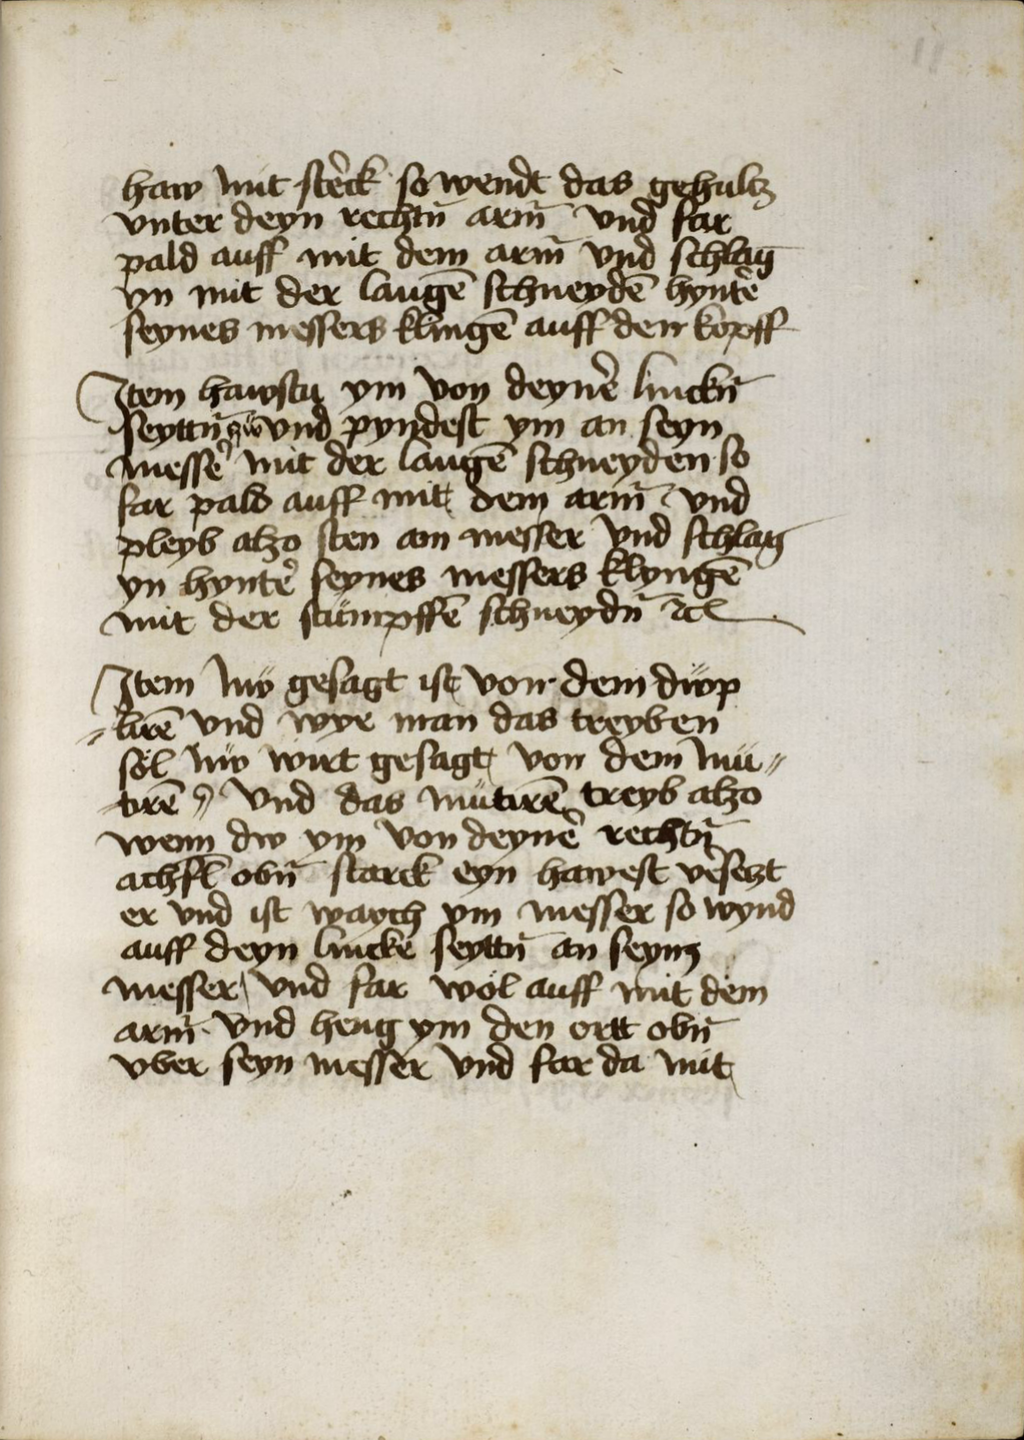 haw mit sterck so wendt das gehultz
vnter deyn rechtn̄ arm̄ vnd far
pald auff mit dem arm̄ vnd schlag
yn mit der langē schneydē hynter
seynes messers klingē auff den kopff
Item hawstu ym von deyner linckn̄
seyttn̄ zw vnd pyndest ym an seyn
messer mit der langē schneyden so
far pald auff mit dem arm̄ vnd
pleyb alzo sten am messer vnd schlag
yn hynter seynes messers klyngē
mit der stümpffē schneydn̄ ⁊c̄
Item nẅ gesagt ist von dem dwp
〃lirē vnd wye man das treyben
söl nẅ wirt gesagt von dem mü〃
tirē vnd das mütirē treyb alzo
wenn dw ym von deyner rechtn̄
achsl̄ obn̄ starck eyn hawest versetzt
er vnd ist waych ym messer so wynd
auff deyn lincke seyttn̄ an seynz
messer vnd far wöl auff mit dem
arm̄ vnd heng ym den ortt obn̄
vber seyn messer vnd far da mit